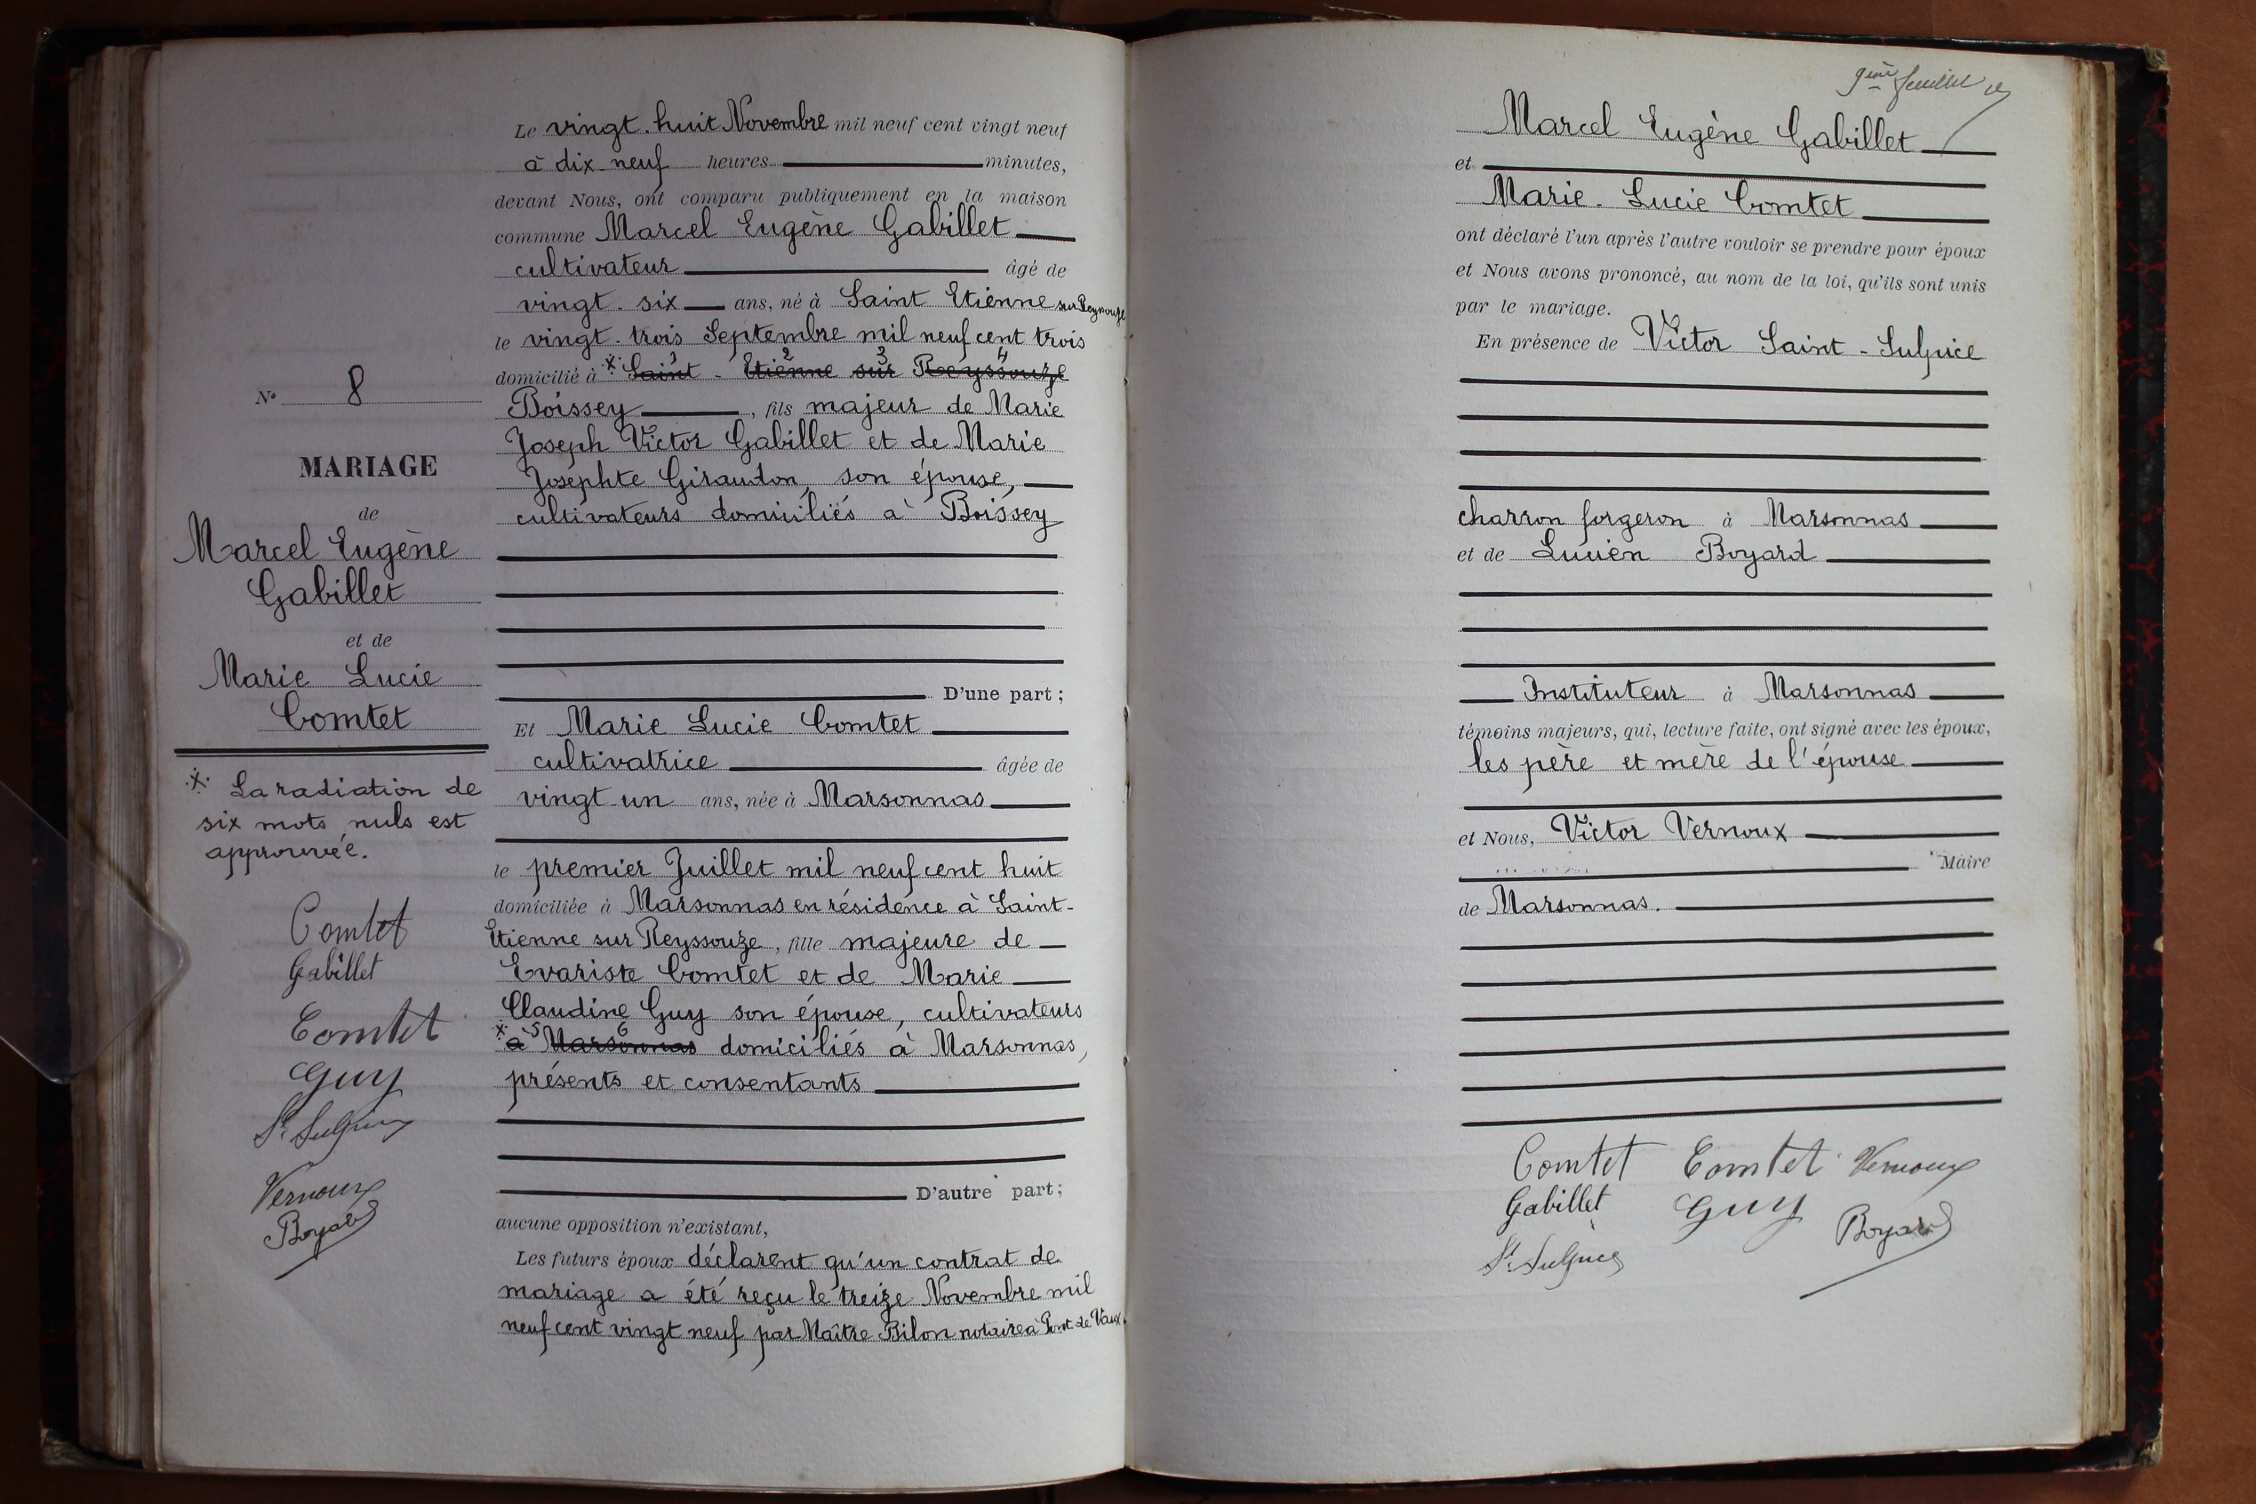 Le vingt-huit Novembre mil neuf cent vingt neuf
à dix-neuf heures minutes,
devant Nous, ont comparu publiquement en la maison
commune Marcel Eugène Gabillet
cultivateur âgé de
vingt-six ans, né à Saint Etienne sur Reyssouze
le vingt-trois Septembre mil neuf cent trois
domicilié à * Saint - Etienne sur Reyssouze
1 2 3 4
Boissey, fils majeur de Marie
Joseph Victor Gabillet et de Marie
Josephte Giraudon, son épouse,
cultivateurs domiciliés à Boissey
D'une part ;
Et Marie Lucie Comtet
cultivatrice âgée de
vingt-un ans, née à Marsonnas
le premier Juillet mil neuf cent huit
domiciliée à Marsonnas en résidence à Saint-
Etienne sur Reyssouze, fille majeure de
Evariste Comtet et de Marie
Claudine Guy son épouse, cultivateurs
5 6
* à Marsonnas domiciliés à Marsonnas,
présents et consentants
D'autre part ;
aucune opposition n'existant,
Les futurs époux déclarent qu'un contrat de
mariage a été reçu le treize Novembre mil
neuf cent vingt neuf par Maître Bilon notaire à Pont de Vaux.
N° 8
MARIAGE
de
Marcel Eugène
Gabillet
et de
Marie Lucie
Comtet
* La radiation de
six mots nuls est
approuvée.
Comtet
Gabillet
Comtet
Guy
St Sulpice
Vernoux
Boyard
9ème feuillet
Marcel Eugène Gabillet
et
Marie-Lucie Comtet
ont déclaré l'un après l'autre vouloir se prendre pour époux
et Nous avons prononcé, au nom de la loi, qu'ils sont unis
par le mariage.
En présence de Victor Saint-Sulpice
charron forgeron à Marsonnas
et de Lucien Boyard
Instituteur à Marsonnas
témoins majeurs, qui, lecture faite, ont signé avec les époux,
les père et mère de l'épouse
et Nous, Victor Vernoux
Maire
de Marsonnas.
Comtet Comtet Vernoux
Gabillet Guy Boyard
St Sulpice